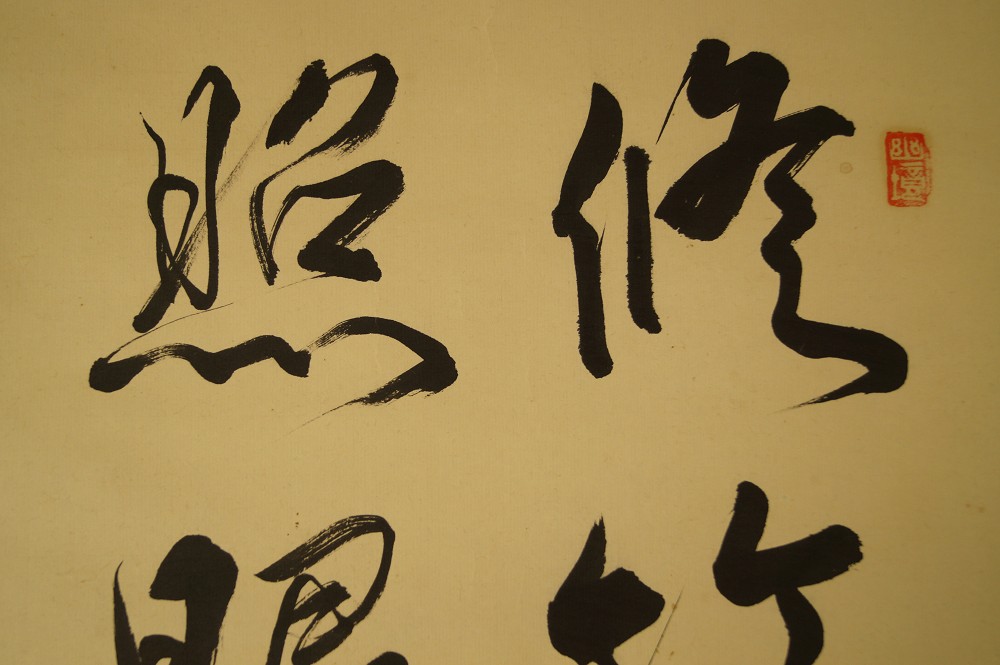 修竹
照眼